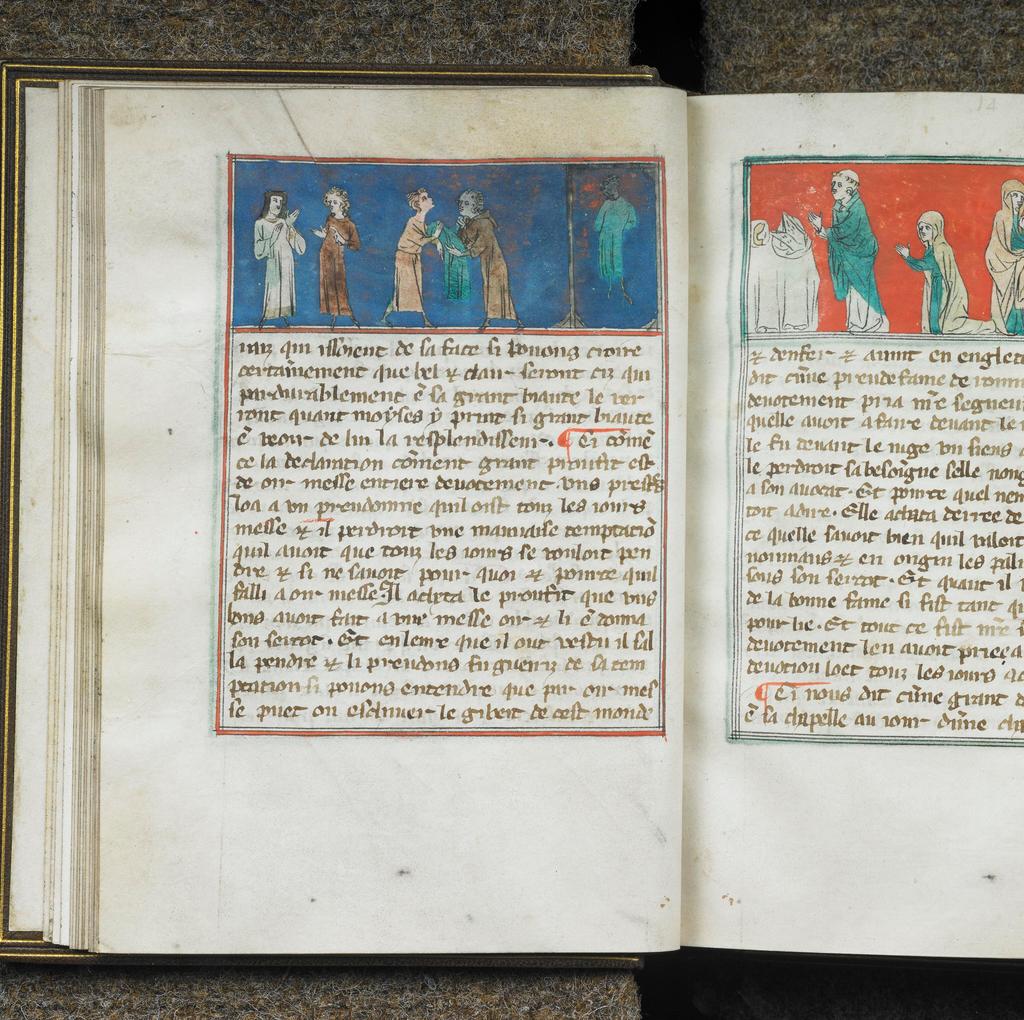 raiz qui issoient de sa face si pouons croire
certainnement que bel & clair seront cil qui
pardurablement ē sa grant biaute le ver
ront quant moyses y print si grant biaute
ē veoir de lui la resplendisseur. ¶ Ci cōmē
ce la declaration cōment grant proufit est
de oir messe entiere deuotement vns prestres
loa a vn preudomme quil oist touz les iours
messe & il perdroit vne mauuaise temptaciō
quil auoit que touz les iours se vouloit pen
dre & si ne sauoit pour quoi & pource quil
falli a oir messe Il acheta le proufit que vns
bons auoit fait a vne messe oir & li ē donna
son sercot. Et en leure que il out vestu il sal
la pendre & li preudons fu gueriz de sa tem
ptacion si pouons entendre que par oir mes
se puet on eschiuer le gibert de cest monde
14
& denfer & auint en englete
dit cūne preude fame de romm
deuotement pria mr̄e segneur
quelle auoit a faire deuant le
le fu deuant le iuge vn siens a
le perdroit sa besoigne selle
a son auocat. Et pource quel nen
toit aidie. Elle acheta
ce quelle sauoit bien quil valoit
nonnains & en origin les
sous son sercot. Et quant il
de la bonne fame si fist tant qu
pour lie. Et tout ce fist mr̄e s
deuotement len auoit priee a
deuotion loer touz les iours
¶ Ci nous dit cūne grant d
ē sa chapelle au iour dūne cha